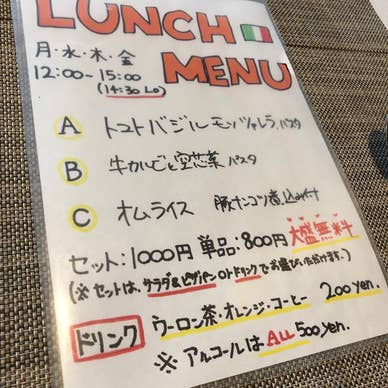 LUNCH
MENU
月・水・木・金
12:00~15:00
(14:30 LO)
A トマトバジルモッツァレラ パスタ
B 牛カルビと空芯菜パスタ
C オムライス 豚ナンコツ煮込み付
セット:1000円 単品:800円 大盛無料
(※セットは、サラダ&ピタパン or ドリンクでお選びいただけます。)
ドリンク ウーロン茶・オレンジ・コーヒー 200yen.
※ アルコールは ALL 500yen.